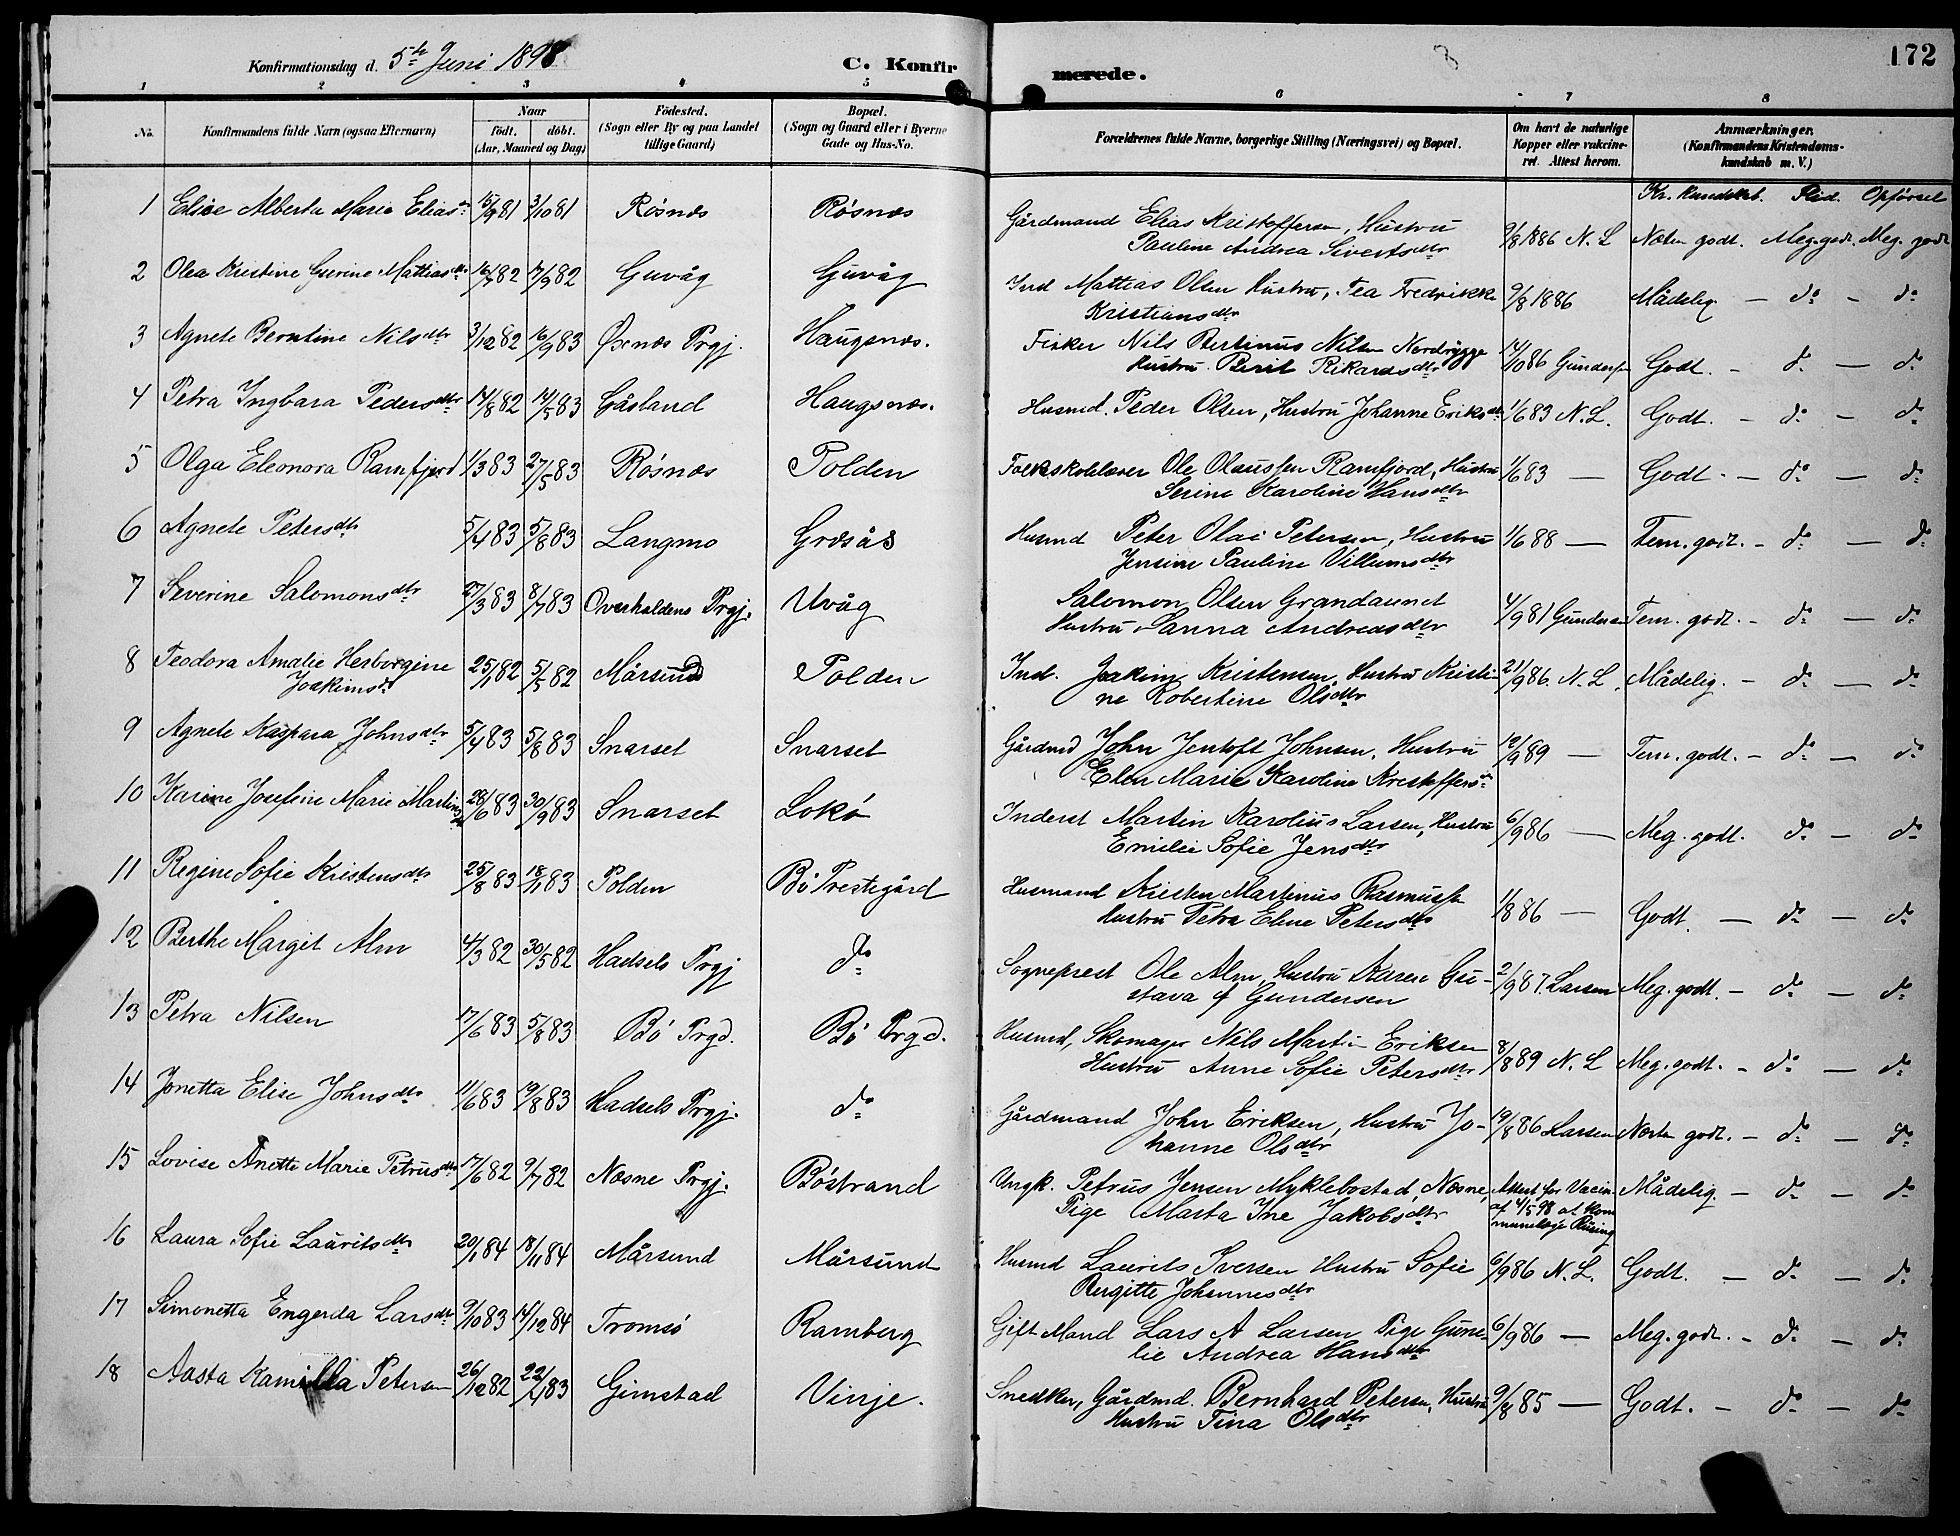 172
Konfirmationsdag d. 5te Juni 1898
C. Konfirmerede.
1 2 3 4 5 6 7 8
No. Konfirmandens fulde Navn (ogsaa Efternavn) Naar født. døbt. (Aar, Maaned og Dag) Fødested. (Sogn eller By og paa Landet tillige Gaard) Bopæl. (Sogn og Gaard eller i Byerne Gade og Hus-No. Forældrenes fulde Navne, borgerlige Stilling (Næringsvei) og Bopæl. Om havt de naturlige Kopper eller vakcineret. Attest herom. Anmærkninger. (Konfirmandens Kristendomskundskab m. V.)
Kr. kundskab. Flid. Opførsel
1 Elise Alberta Marie Eliasdr 15/9 81 3/10 81 Røsnes Røsnes Gårdmand Elias Kristoffersen, Hustru 9/8 1886 N. L Næsten godt. Meg. godt. Meg. godt
Pauline Andrea Sivertsdtr
2 Olea Kristine Gurine Mattiasdtr 16/7 82 17/9 82 Guvåg Guvåg Ind Mattias Olsen Hustru, Tea Fredrikke 9/8 1886 Mådelig — do — do
Kristiansdtr
3 Agnete Berntine Nilsdtr 3/12 82 16/9 83 Øxnes Prgj. Haugsnes. Fisker Nils Bertinus Nilsen Nordrygge 14/10 86 Gundersen Godt. — do — do
Hustru Berit Rikardsdtr
4 Petra Ingbara Pedersdtr 14/8 82 14/5 83 Gåsland Haugsnes. Husmd. Peder Olsen, Hustru Johanne Eriksdr 1/6 83 N. L. Godt. — do — do
5 Olga Eleonora Ramfjord 1/3 83 27/5 83 Røsnes Polden Folkskolelærer Ole Olaussen Ramfjord, Hustru 1/6 83 — Godt. — do — do
Serine Karoline Hansdtr
6 Agnete Petersdtr 5/4 83 5/8 83 Langmo Græsås Husmd Peter Olai Petersen, Hustru 1/6 88 — Tem. godt. — do — do
Jensine Pauline Villumsdtr
7 Severine Salomonsdtr 27/3 83 8/7 83 Overhaldens Prgj. Uvåg Salomon Olsen Grandaunet 4/9 81 Gundersen Tem. godt. — do — do
Hustru Sanna Andreasdtr
8 Teodora Amalie Hesborgine 25/1 82 5/5 82 Mårsund Polden Ind. Joakim Kristensen, Hustru Kristi- 21/9 86. N. L. Mådelig. — do — do
Joakimsdr ne Robertine Olsdtr
9 Agnete Kaspara Johnsdtr 5/4 83 5/8 83 Snarset Snarset Gårdmd John Jentoft Johnsen, Hustru 12/9 89 — Tem. godt. — do — do
Elen Marie Karoline Kristoffersdr
10 Karine Josefine Marie Martinsdr 28/6 83 30/9 83 Snarset Lokø Inderst Martin Karolius Larsen, Hustru 6/9 86 — Meg. godt. do — do
Emilie Sofie Jensdtr
11 Regine Sofie Kristensdtr 25/8 83 18/11 83 Polden Bø Prestegård Husmand Kristen Martinus Rasmussen 1/8 86 — Godt. — do — do
Hustru Petra Eline Petersdtr
12 Berthe Margit Alm 4/3 82 30/5 82 Hadsels Prgj do Sogneprest Ole Alm, Hustru Karen Gu- 2/9 87. Larsen Meg. godt. — do — do
stava f Gundersen
13 Petra Nilsen 17/6 83 5/8 83 Bø Prgd. Bø Prgd. Husmd, Skomager Nils Martin Eriksen 8/8 89 N. L Meg. godt. — do — do
Hustru Anne Sofie Petersdtr
14 Jonetta Elise Johnsdtr 11/6 83 19/8 83 Hadsels Prgj. do Gårdmand John Eriksen, Hustru Jo- 19/8 86 Larsen Næsten godt. — do — do
hanne Olsdtr
15 Lovise Anette Marie Petrusdtr 17/6 82 9/7 82 Næsne Prgj. Bøstrand Ungk. Petrus Jensen Myklebostad, Næsne, Attest for Vacin. Mådelig — do — do
Pige Marta Ine Jakobsdtr af 4/5 98 af kom
munelæge Rising
16 Laura Sofie Lauritsdtr 20/1 84 18/11 84 Mårsund Mårsund Husmd Laurits Iversen Hustru Sofie 6/9 86 N. L. Godt. — do — do
Birgitte Johannesdtr
17 Simonetta Engerda Larsdtr 9/10 83 14/12 84 Tromsø Ramberg Gift Mand Lars A Larsen Pige Gune- 6/9 86 — Meg. godt. — do — do
lie Andrea Hansdtr
18 Aasta Kamilla Petersen 26/12 82 22/4 83 Gimstad Vinje. Snedker, Gårdmd. Bernhard Petersen, Hustru 9/8 85 — Godt. — do — do
Hustru Tina Olsdtr